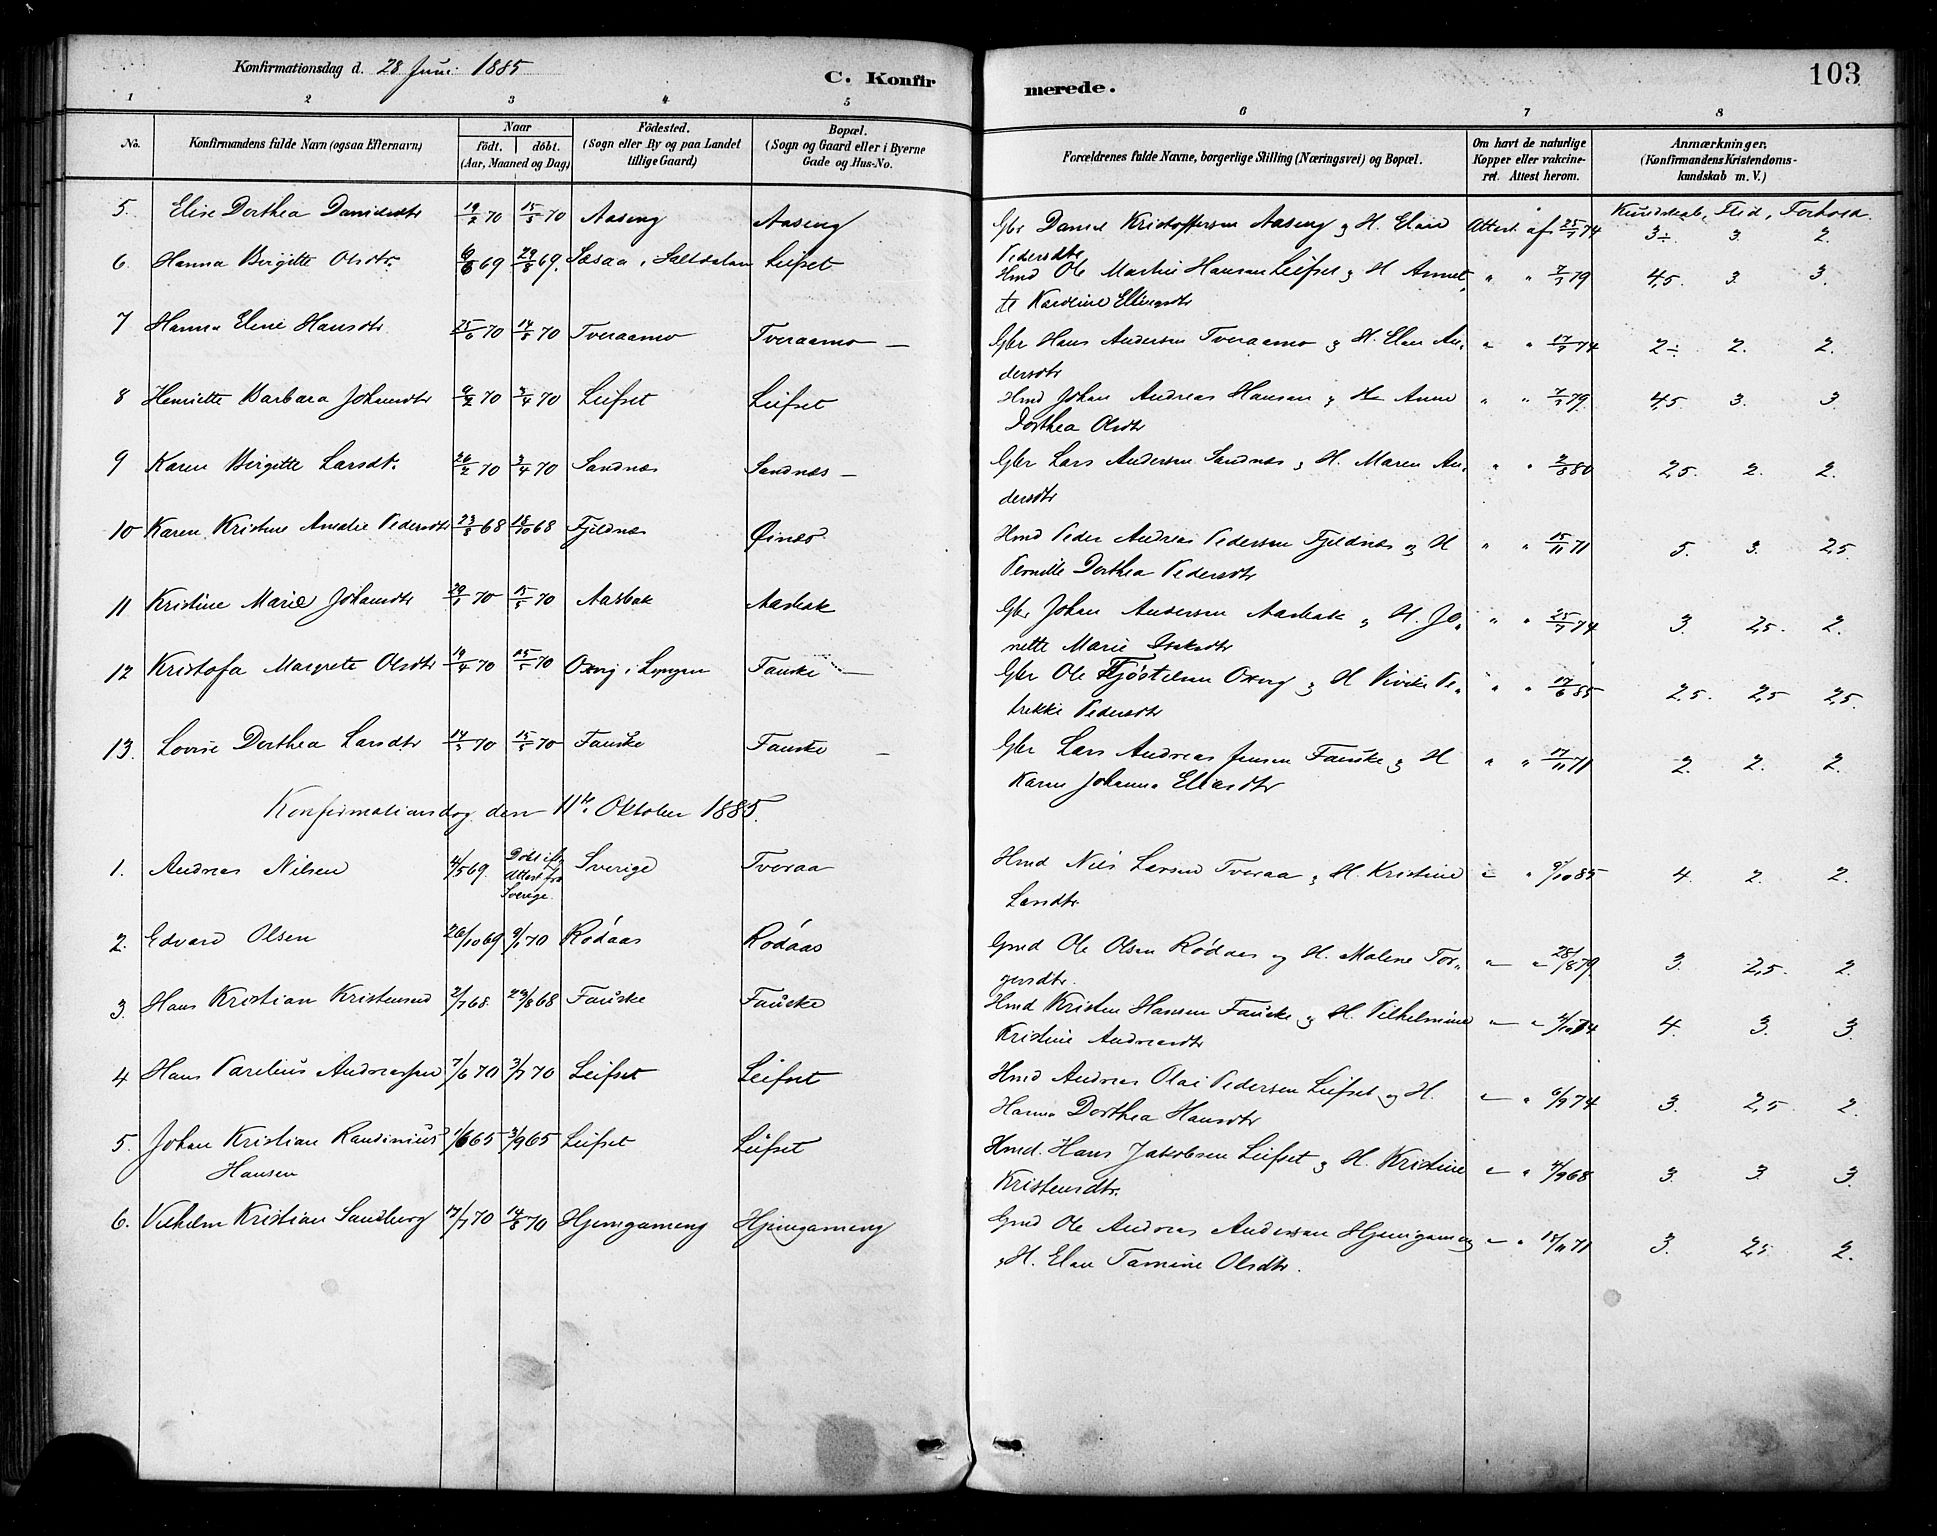 Konfirmationsdag d. 28 Juni 1885
C. Konfir
merede.
103
1 2 3 4 5 6 7 8
No.
Konfirmandens fulde Navn (ogsaa Efternavn)
Naar
født. døbt.
(Aar, Maaned og Dag)
Födested.
(Sogn eller By og paa Landet
tillige Gaard)
Bopæl.
(Sogn og Gaard eller i Byerne
Gade og Hus-No.
Forældrenes fulde Navne, borgerlige Stilling (Næringsvei) og Bopæl.
Om havt de naturlige
Kopper eller vakcine-
ret. Attest herom.
Anmærkninger.
(Konfirmandens Kristendoms-
kundskab m. V.)
Kundskab, Flid, Forhold.
5. Elise Dorthea Danielsdtr 19/2 70 15/5 70 Aaseng Aaseng Gbr Daniel Kristoffersen Aaseng & H. Elene Attest af 25/7 74 3÷ 3. 2.
Pedersdtr
6. Hanna Bergitte Olsdtr. 6/6 69 29/8 69. i Saltdalen Leifset Hmd Ole Martin Hansen Leifset & H Annet- " " 7/7 79 4,5. 3. 3.
te Karoline Ellingsdtr
7 Hanna Elene Hansdtr 25/6 70 14/8 70 Tveraamo Tveraamo — Gbr Hans Andersen Tveraamo & H. Elen An- " " 17/7 74 2÷ 2. 2.
dersdtr
8 Henriette Barbara Johansdtr 9/2 70 3/4 70 Leifset Leifset Hmd Johan Andreas Hansen & H Anne " " 7/7 79. 4,5. 3. 3.
Dorthea Olsdtr
9 Karen Bergitte Larsdt. 26/2 70 3/4 70 Sandnæs Sandnæs — Gbr Lars Andersen Sandnæs & H. Maren An- " " 2/8 80 2,5. 2. 2.
dersdtr
10 Karen Kristine Amalie Pedersdtr 23/8 68 18/10 68 Fjeldnæs Øinæs. Hmd Peder Andreas Pedersen Fjeldnæs og H " " 15/11 71 5. 3. 2,5.
Pernille Dorthea Pedersdtr
11 Kristine Marie Johansdtr 29/1 70 15/5 70 Aasbak Aasbak Gbr Johan Andersen Aasbak & H. Jo- " " 25/7 74 3. 2,5. 2.
nette Marie Isaksdtr
12 Kristofa Margrete Olsdtr 14/4 70 15/5 70 Oxeng i Lyngen Fauske — Gbr Ole Fjøstelsen Oxeng & H Vivike Pe- " " 17/6 85 2,5. 2,5 2,5.
trekke Pedersdtr
13. Lovise Dorthea Larsdtr 14/3 70 15/5 70 Fauske Fauske — Gbr Lars Andreas Jensen Fauske & H " " 17/11 71 2. 2. 2.
Karen Johanna Eliasdtr
Konfirmationsdag den 11te Oktober 1885.
1. Andreas Nilsen 4/5 69. Døbt iflg Attest fra Sverige. Sverige Tveraa Hmd Nils Larsen Tveraa & H. Kristine " " 9/10 85 4. 2. 2.
Larsdtr
2. Edvard Olsen 26/10 69 9/1 70 Rødaas Rødaas Gmd Ole Olsen Rødaas og H. Malene Tor- " " 28/8 79 3. 2,5. 2.
gersdtr.
3. Hans Kristian Kristensen 2/7 68. 29/8 68 Fauske Fauske Hmd Kristen Hansen Fauske & H. Vilhelmine " " 4/10 74 4. 3. 3.
Kristine Andreasdtr
4 Hans Parelius Andreassen 7/6 70 3/7 70 Leifset Leifset Hmd Andreas Olai Pedersen Leifset og H. " " 6/7 74 3. 2,5 2.
Hanna Dorthea Hansdtr
5. Johan Kristian Randinius 1/6 65 3/9 65 Leifset Leifset Hmd. Hans Jakobsen Leifset & H. Kristine " " 4/9 68 3. 3. 3.
Hansen
Kristensdtr.
6. Vilhelm Kristian Sandberg 17/7 70 14/8 70 Hjemgameng Hjemgameng Gmd Ole Andreas Andersen Hjemgameng " " 17/11 71 3. 2,5 2.
& H. Elen Tamine Olsdtr.